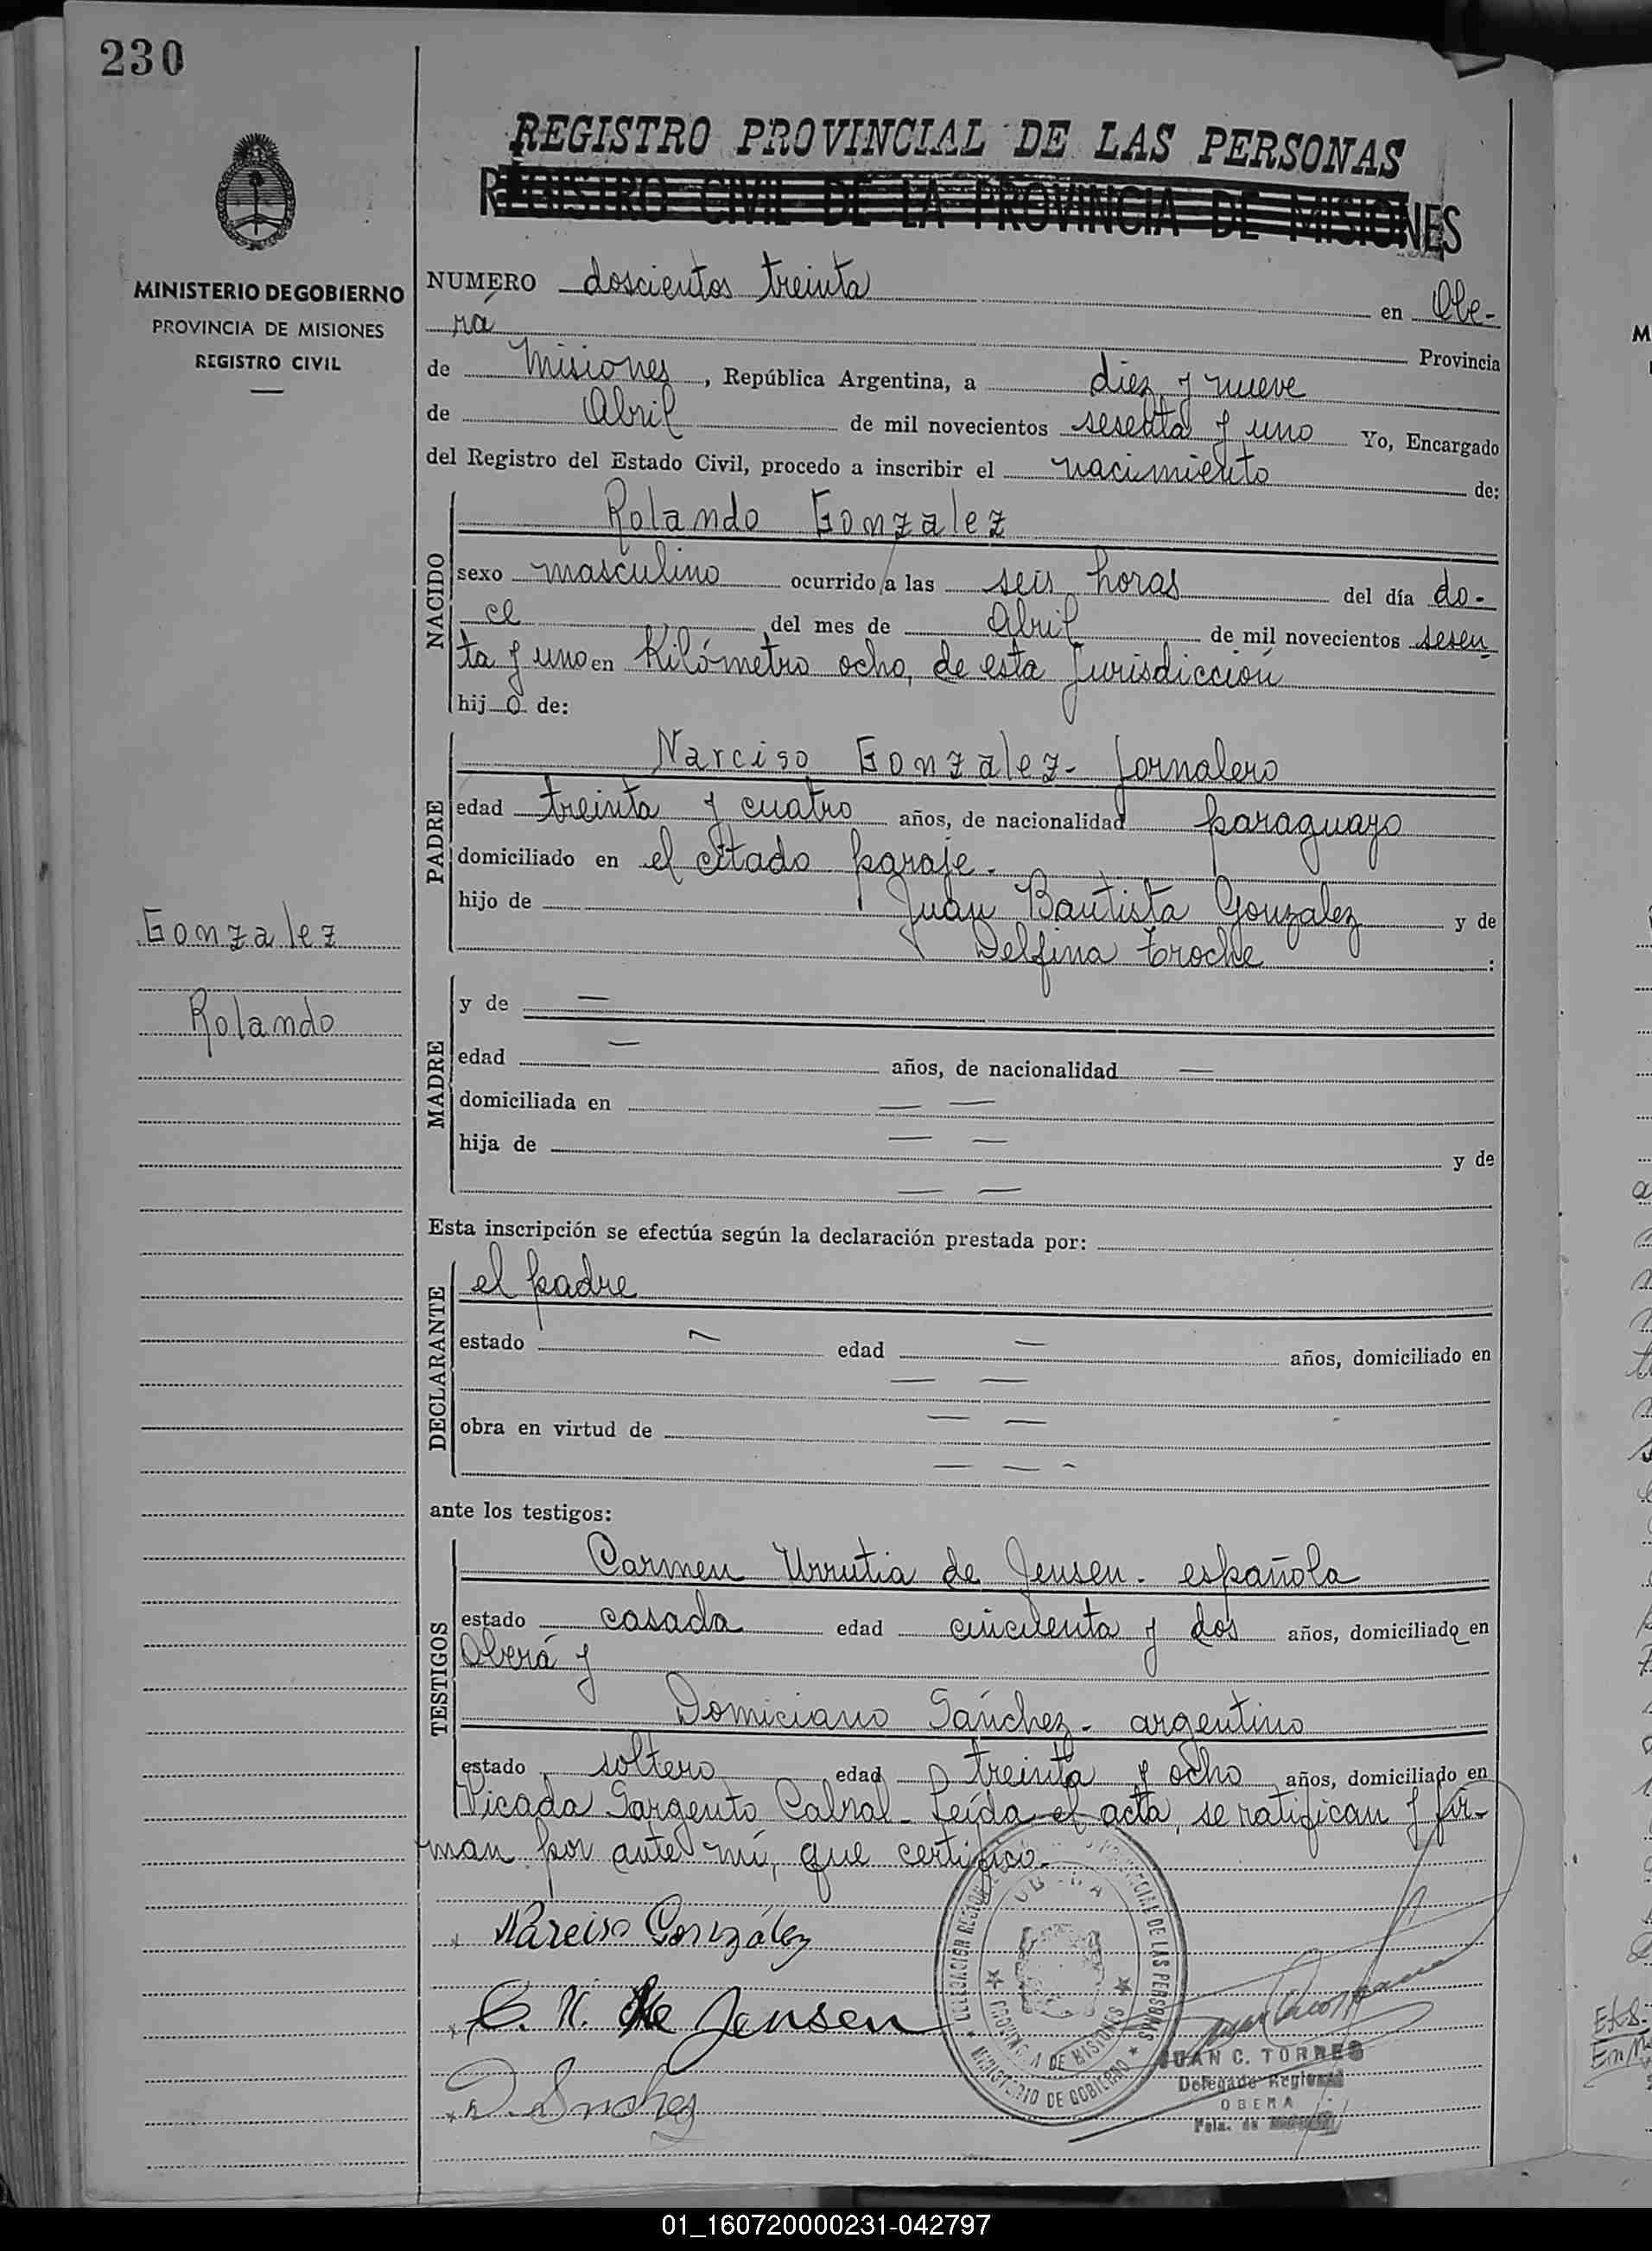 230
REGISTRO PROVINCIAL DE LAS PERSONAS
REGISTRO CIVIL DE LA PROVINCIA DE MISIONES
MINISTERIO DE GOBIERNO
PROVINCIA DE MISIONES
REGISTRO CIVIL
NUMERO doscientos treinta en Obe-
rá Provincia
de Misiones, República Argentina, a diez y nueve
de Abril de mil novecientos sesenta y uno Yo, Encargado
del Registro del Estado Civil, procedo a inscribir el nacimiento de:
NACIDO
Rolando Gonzalez
sexo masculino ocurrido a las seis horas del día do-
ce del mes de Abril de mil novecientos sesen
ta y uno en Kilómetro ocho, de esta Jurisdicción
hijo de:
PADRE
Narciso Gonzalez- Jornalero
edad treinta y cuatro años, de nacionalidad paraguayo
domiciliado en el citado paraje.
hijo de Juan Bautista Gonzalez y de
Delfina Troche :
Gonzalez
Rolando
MADRE
y de —
edad — años, de nacionalidad —
domiciliada en — —
hija de — — y de
— —
Esta inscripción se efectúa según la declaración prestada por:
DECLARANTE
el padre
estado — edad — años, domiciliado en
— —
obra en virtud de — —
— — -
ante los testigos:
TESTIGOS
Carmen Urrutia de Jensen- española
estado casada edad cincuenta y dos años, domiciliado en
Oberá y
Domiciano Sánchez- argentino
estado soltero edad treinta y ocho años, domiciliado en
Picada Sargento Cabral- Leída el acta, se ratifican y fir-
man por ante mí, que certifico-
x Narciso González
x C. U. de Jensen
x D. Snchez
PROVINCIAL DE LAS PERSONAS
PROVINCIA DE MISIONES
MINISTERIO DE GOBIERNO
JUAN C. TORRES
Delegado Regional
OBERA
Pcia. de
01_160720000231-042797